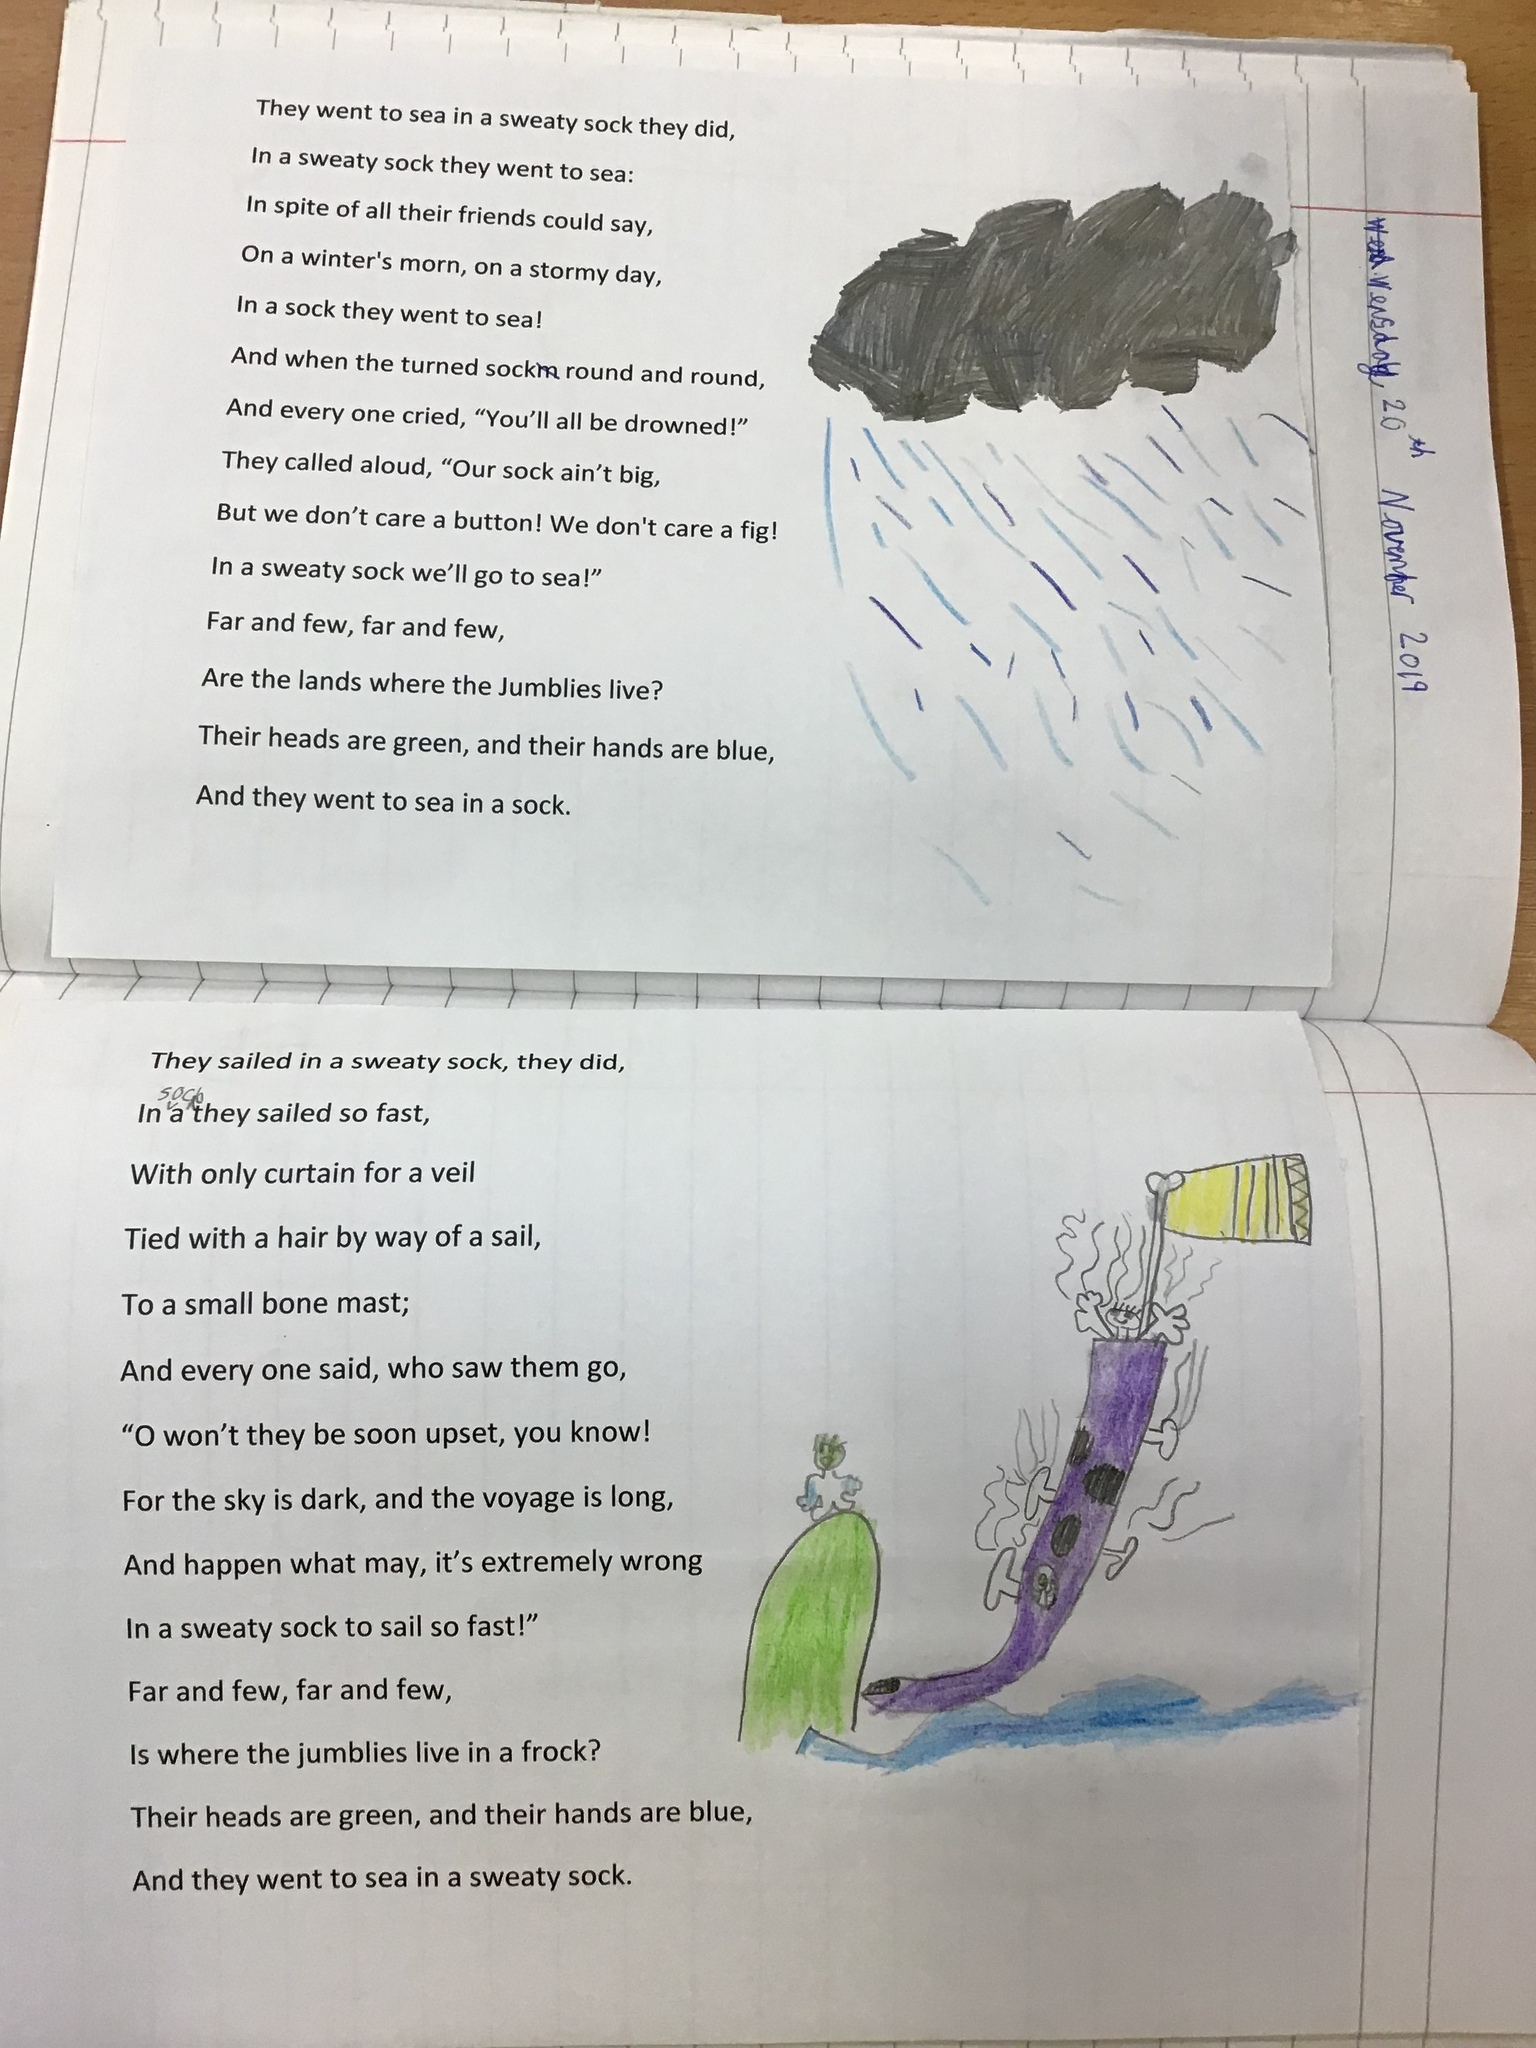 They went to sea in a sweaty sock they did,
In a sweaty sock they went to sea:
In spite of all their friends could say,
On a winter's morn, on a stormy day,
In a sock they went to sea!
And when the turned sock round and round,
And every one cried, “You’ll all be drowned!”
They called aloud, “Our sock ain’t big,
But we don’t care a button! We don't care a fig!
In a sweaty sock we’ll go to sea!”
Far and few, far and few,
Are the lands where the Jumblies live?
Their heads are green, and their hands are blue,
And they went to sea in a sock.
20th November 2019
They sailed in a sweaty sock, they did,
sock
In a they sailed so fast,
With only curtain for a veil
Tied with a hair by way of a sail,
To a small bone mast;
And every one said, who saw them go,
“O won’t they be soon upset, you know!
For the sky is dark, and the voyage is long,
And happen what may, it’s extremely wrong
In a sweaty sock to sail so fast!”
Far and few, far and few,
Is where the jumblies live in a frock?
Their heads are green, and their hands are blue,
And they went to sea in a sweaty sock.